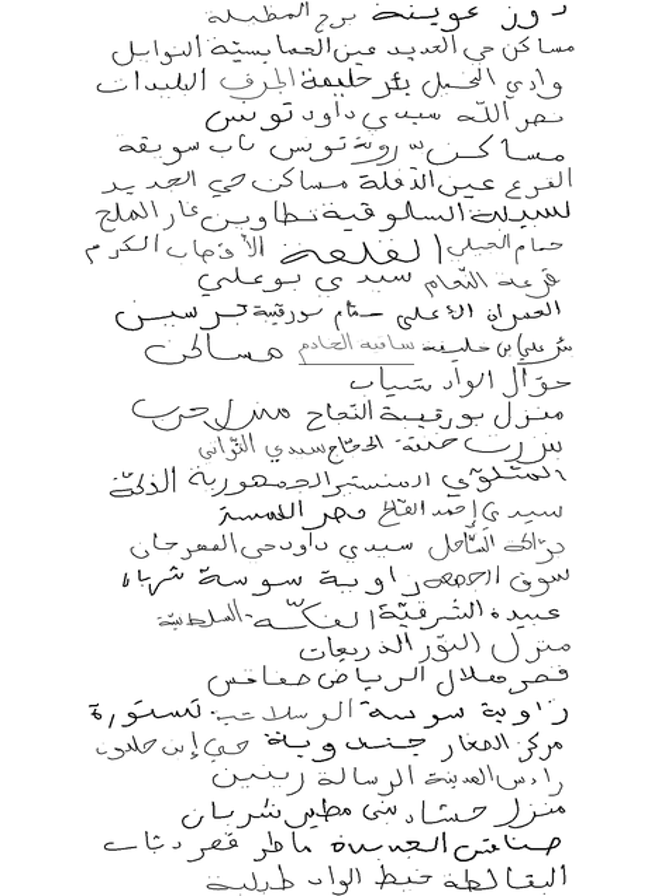 دوز عوينة برج الطبيلة
مساكن حي الحديد عين الحمايسيّة النوايل
وادي الخيل بئر حليمة الجرف البليدات
نصر الله سيدي داود تونس
مساكن روتة تونس باب سويقة
القرع عين الدّفلة مساكن حي الجديد
لسيدة السلوقية تطاوين غار الملح
حمام الجبلي القلعة الأقصاب الكرم
قرعة النّعام سيدي بوعلي
العمران الأعلى حمّام بورقيبة برسين
بئر علي بن خليفة ساقية الخادم مساكن
حوّال الواد شباب
منزل بورقيبة النّجاح منزل حرب
بنزرت الحجّاج سيدي التّواتي
المتلوّي المنستير الجمهورية الذكّة
سيدي أحمد الصّالح قصر اللمسة
درّاكة السّاحل سيدي داود حي المهرجان
سوق الجمعة زاوية سوسة شربان
عبيدة الشّرقيّة الفكّة السلطنيّة
منزل النّور الذريعات
قصر هلال الرياض صفاقس
زاوية سوسة الوسلاتية تستورة
مركز الصغار جندوبة حي إبن خلدون
رادس المدينة الرسالة زينين
منزل حشاد بني مطير شربان
صفاقس الجديدة ماطر قصر دباب
البقالطة خيط الواد طبلبة